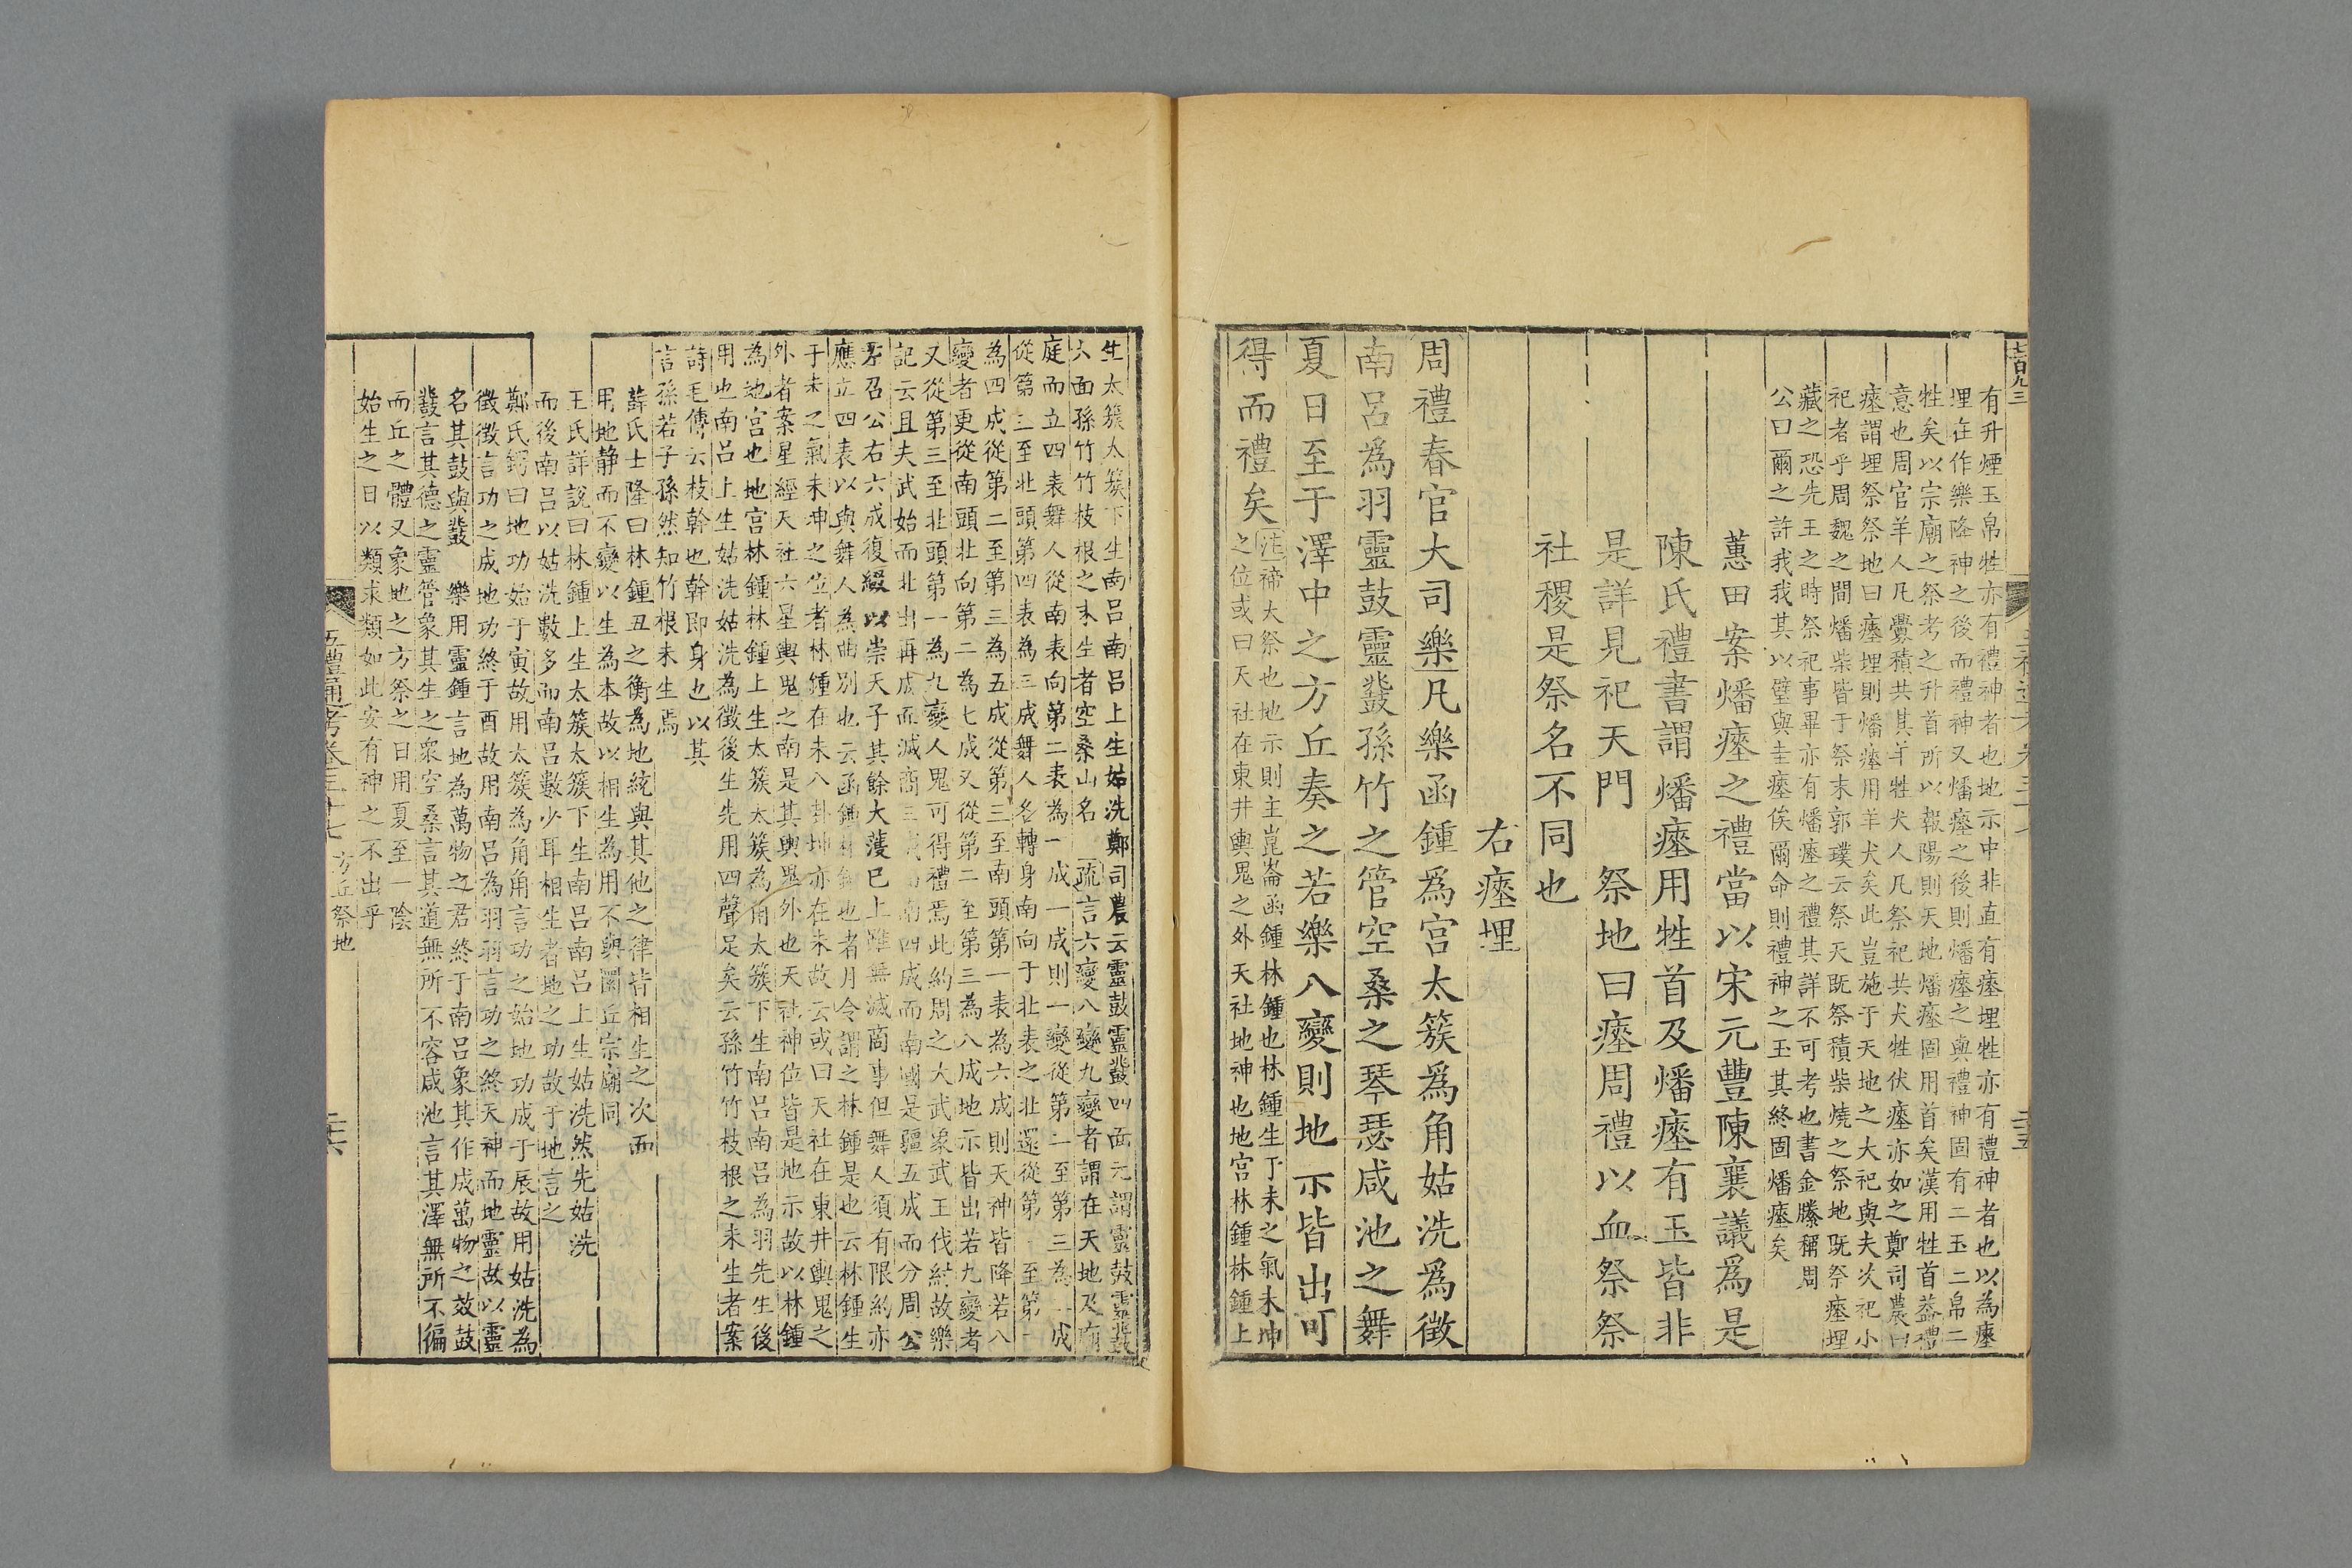 有升煙玉帛牲亦有禮神者也地示中非直有瘞埋牲亦有禮神者也以為瘞
埋在作樂降神之後而禮神又燔瘞之後則燔瘞之與禮神固有二玉二帛二
牲矣以宗廟之祭考之升首所以報陽則天地燔瘞固用首矣漢用牲首葢禮
意也周官羊人凡釁積共其羊牲犬人凡祭祀共犬牲伏瘞亦如之鄭司農曰
瘞謂埋祭祭地曰瘞埋則燔瘞用羊犬矣此豈施于天地之大祀與夫次祀小
祀者乎周魏之間燔柴皆于祭末郭璞云祭天既祭積柴燒之祭地既祭瘞埋
藏之恐先王之時祭祀事畢亦有燔瘞之禮其詳不可考也書金縢稱周
公曰爾之許我我其以璧與圭瘞俟爾命則禮神之玉其終固燔瘞矣
蕙田案燔瘞之禮當以宋元豐陳襄議爲是
陳氏禮書謂燔瘞用牲首及燔瘞有玉皆非
是詳見祀天門　祭地曰瘞周禮以血祭祭
社稷是祭名不同也
右瘞埋
周禮春官大司樂凡樂函鍾爲宮太簇爲角姑洗爲徵
南呂爲羽靈鼓靈鼗孫竹之管空桑之琴瑟咸池之舞
夏日至于澤中之方丘奏之若樂八變則地示皆出可
得而禮矣
注禘大祭也地示則主崑崙函鍾林鍾也林鍾生于未之氣未坤
之位或曰天社在東井輿鬼之外天社地神也地宮林鍾林鍾上
生太簇太簇下生南呂南呂上生姑洗鄭司農云靈鼓靈鼗四面元謂靈鼓靈鼗
六面孫竹竹枝根之末生者空桑山名　疏言六變八變九變者謂在天地及廟
庭而立四表舞人從南表向第二表為一成一成則一變從第二至第三為二成
從第三至北頭第四表為三成舞人各轉身南向于北表之北還從第一至第二
為四成從第二至第三為五成從第三至南頭第一表為六成則天神皆降若八
變者更從南頭北向第二為七成又從第二至第三為八成地示皆出若九變者
又從第三至北頭第一為九變人鬼可得禮焉此約周之大武象武王伐紂故樂
記云且夫武始而北出再成而滅商三成而南四成而南國是疆五成而分周公
右召公右六成復綴以崇天子其餘大濩已上雖無滅商事但舞人須有限約亦
應立四表以與舞人為曲別也云函鍾林鍾也者月令謂之林鍾是也云林鍾生
于未之氣未坤之位者林鍾在未八卦坤亦在未故云或曰天社在東井輿鬼之
外者案星經天社六星輿鬼之南是其輿鬼外也天社神位皆是地示故以林鍾
為地宮也地宮林鍾林鍾上生太簇太簇為角太簇下生南呂南呂為羽先生後
用也南呂上生姑洗姑洗為徵後生先用四聲足矣云孫竹竹枝根之末生者案
詩毛傳云枝幹也幹即身也以其
言孫若子孫然知竹根末生焉
薛氏士隆曰林鍾丑之衡為地統與其他之律皆相生之次而
用地静而不變以生為本故以相生為用不與圜丘宗廟同
王氏詳說曰林鍾上生太簇太簇下生南呂南呂上生姑洗然先姑洗
而後南呂以姑洗數多而南呂數少耳相生者地之功故于地言之
鄭氏鍔曰地功始于寅故用太簇為角角言功之始地功成于辰故用姑洗為
徵徵言功之成地功終于酉故用南呂為羽羽言功之終天神而地靈故以靈
名其鼓與鼗　樂用靈鍾言地為萬物之君終于南呂象其作成萬物之效鼓
鼗言其德之靈管象其生之衆空桑言其道無所不容咸池言其澤無所不徧
而丘之體又象地之方祭之日用夏至一陰
始生之日以類求類如此安有神之不出乎
五禮通考卷三十七　方丘祭地　二六